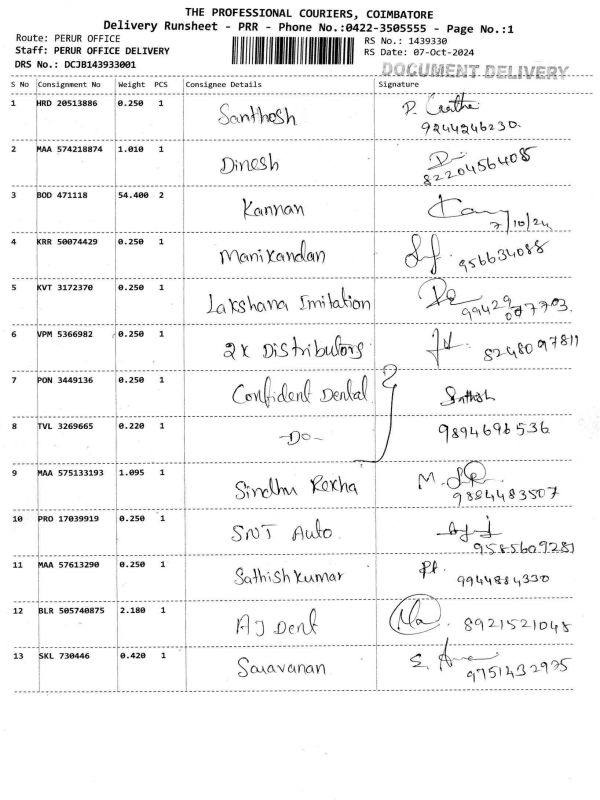 THE PROFESSIONAL COURIERS, COIMBATORE
Delivery Runsheet - PRR - Phone No.:0422-3505555 - Page No.:1
Route: PERUR OFFICE
RS No.: 1439330
Staff: PERUR OFFICE DELIVERY
RS Date: 07-Oct-2024
DRS No.: DCJB143933001
DOCUMENT DELIVERY
S No Consignment No Weight PCS Consignee Details Signature
1 HRD 20513886 0.250 1 Santhosh
9244246230.
2 MAA 574218874 1.010 1 Dinesh
82204564085
3 BOD 471118 54.400 2 Kannan
7/10/24
4 KRR 50074429 0.250 1 Manikandan 956634088
5 KVT 3172370 0.250 1 Lakshana Imitation 99429
077703.
6 VPM 5366982 0.250 1 2X Distributors 8248097811
7 PON 3449136 0.250 1 Confident Dental Sathish
8 TVL 3269665 0.220 1 -Do- 9894696536
9 MAA 575133193 1.095 1 Sindhu Rekha 9384483507
10 PRO 17039919 0.250 1 SNT Auto 9585609281
11 MAA 57613290 0.250 1 Sathish Kumar 9944884330
12 BLR 505740875 2.180 1 AJ Dent 8921521048
13 SKL 730446 0.420 1 Saravanan 9751432975